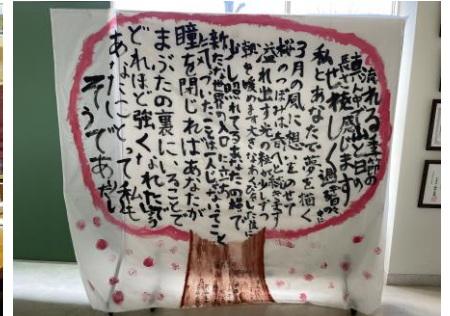 流れる季節の
真ん中でふと日の
長さを感じます
せわしく過ぎる日々の中に
私とあなたで夢を描く
3月の風に想いをのせて
桜のつぼみは春へと続きます
溢れ出す光の粒が少しずつ
朝を暖めます大きなあくびをした後に
少し照れてるあなたの横で
新たな世界の入口に立ち
気づいたことは1人じゃないってこと
瞳を閉じればあなたが
まぶたの裏にいることで
どれほど強くなれたでしょう
あなたにとって私も
そうでありたい